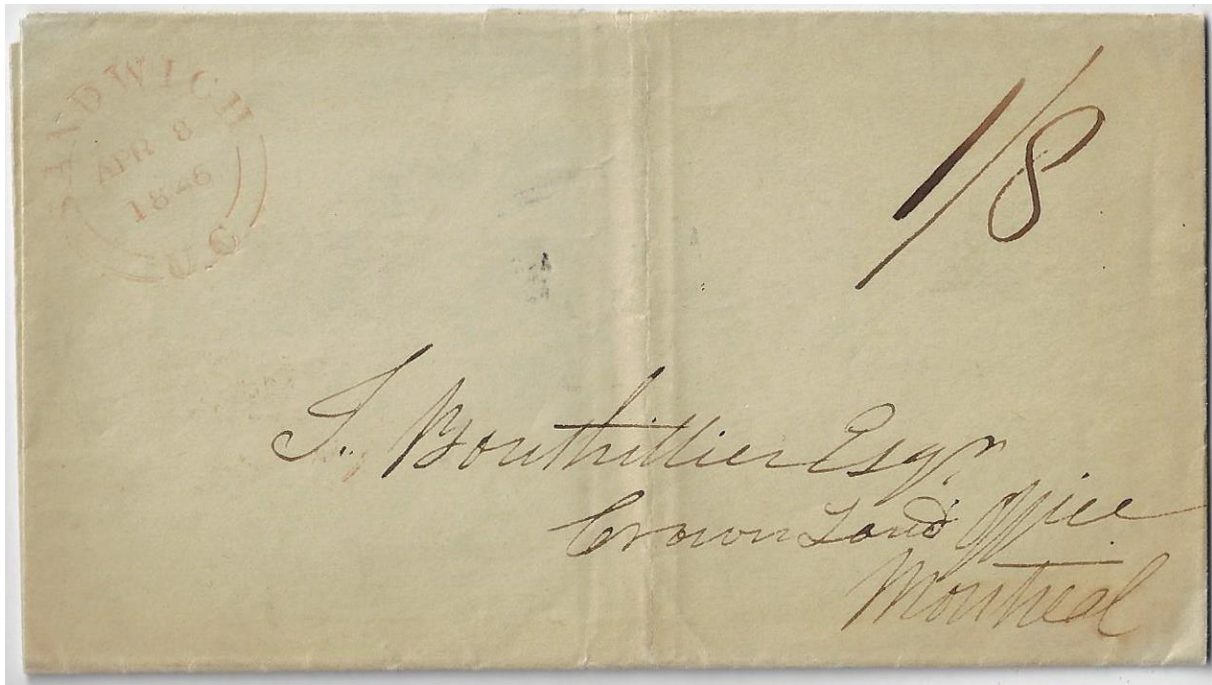 SANDWICH
APR 8
1846
U.C
1/8
T. Bouthillier Esqr
Crown Land Office
Montreal